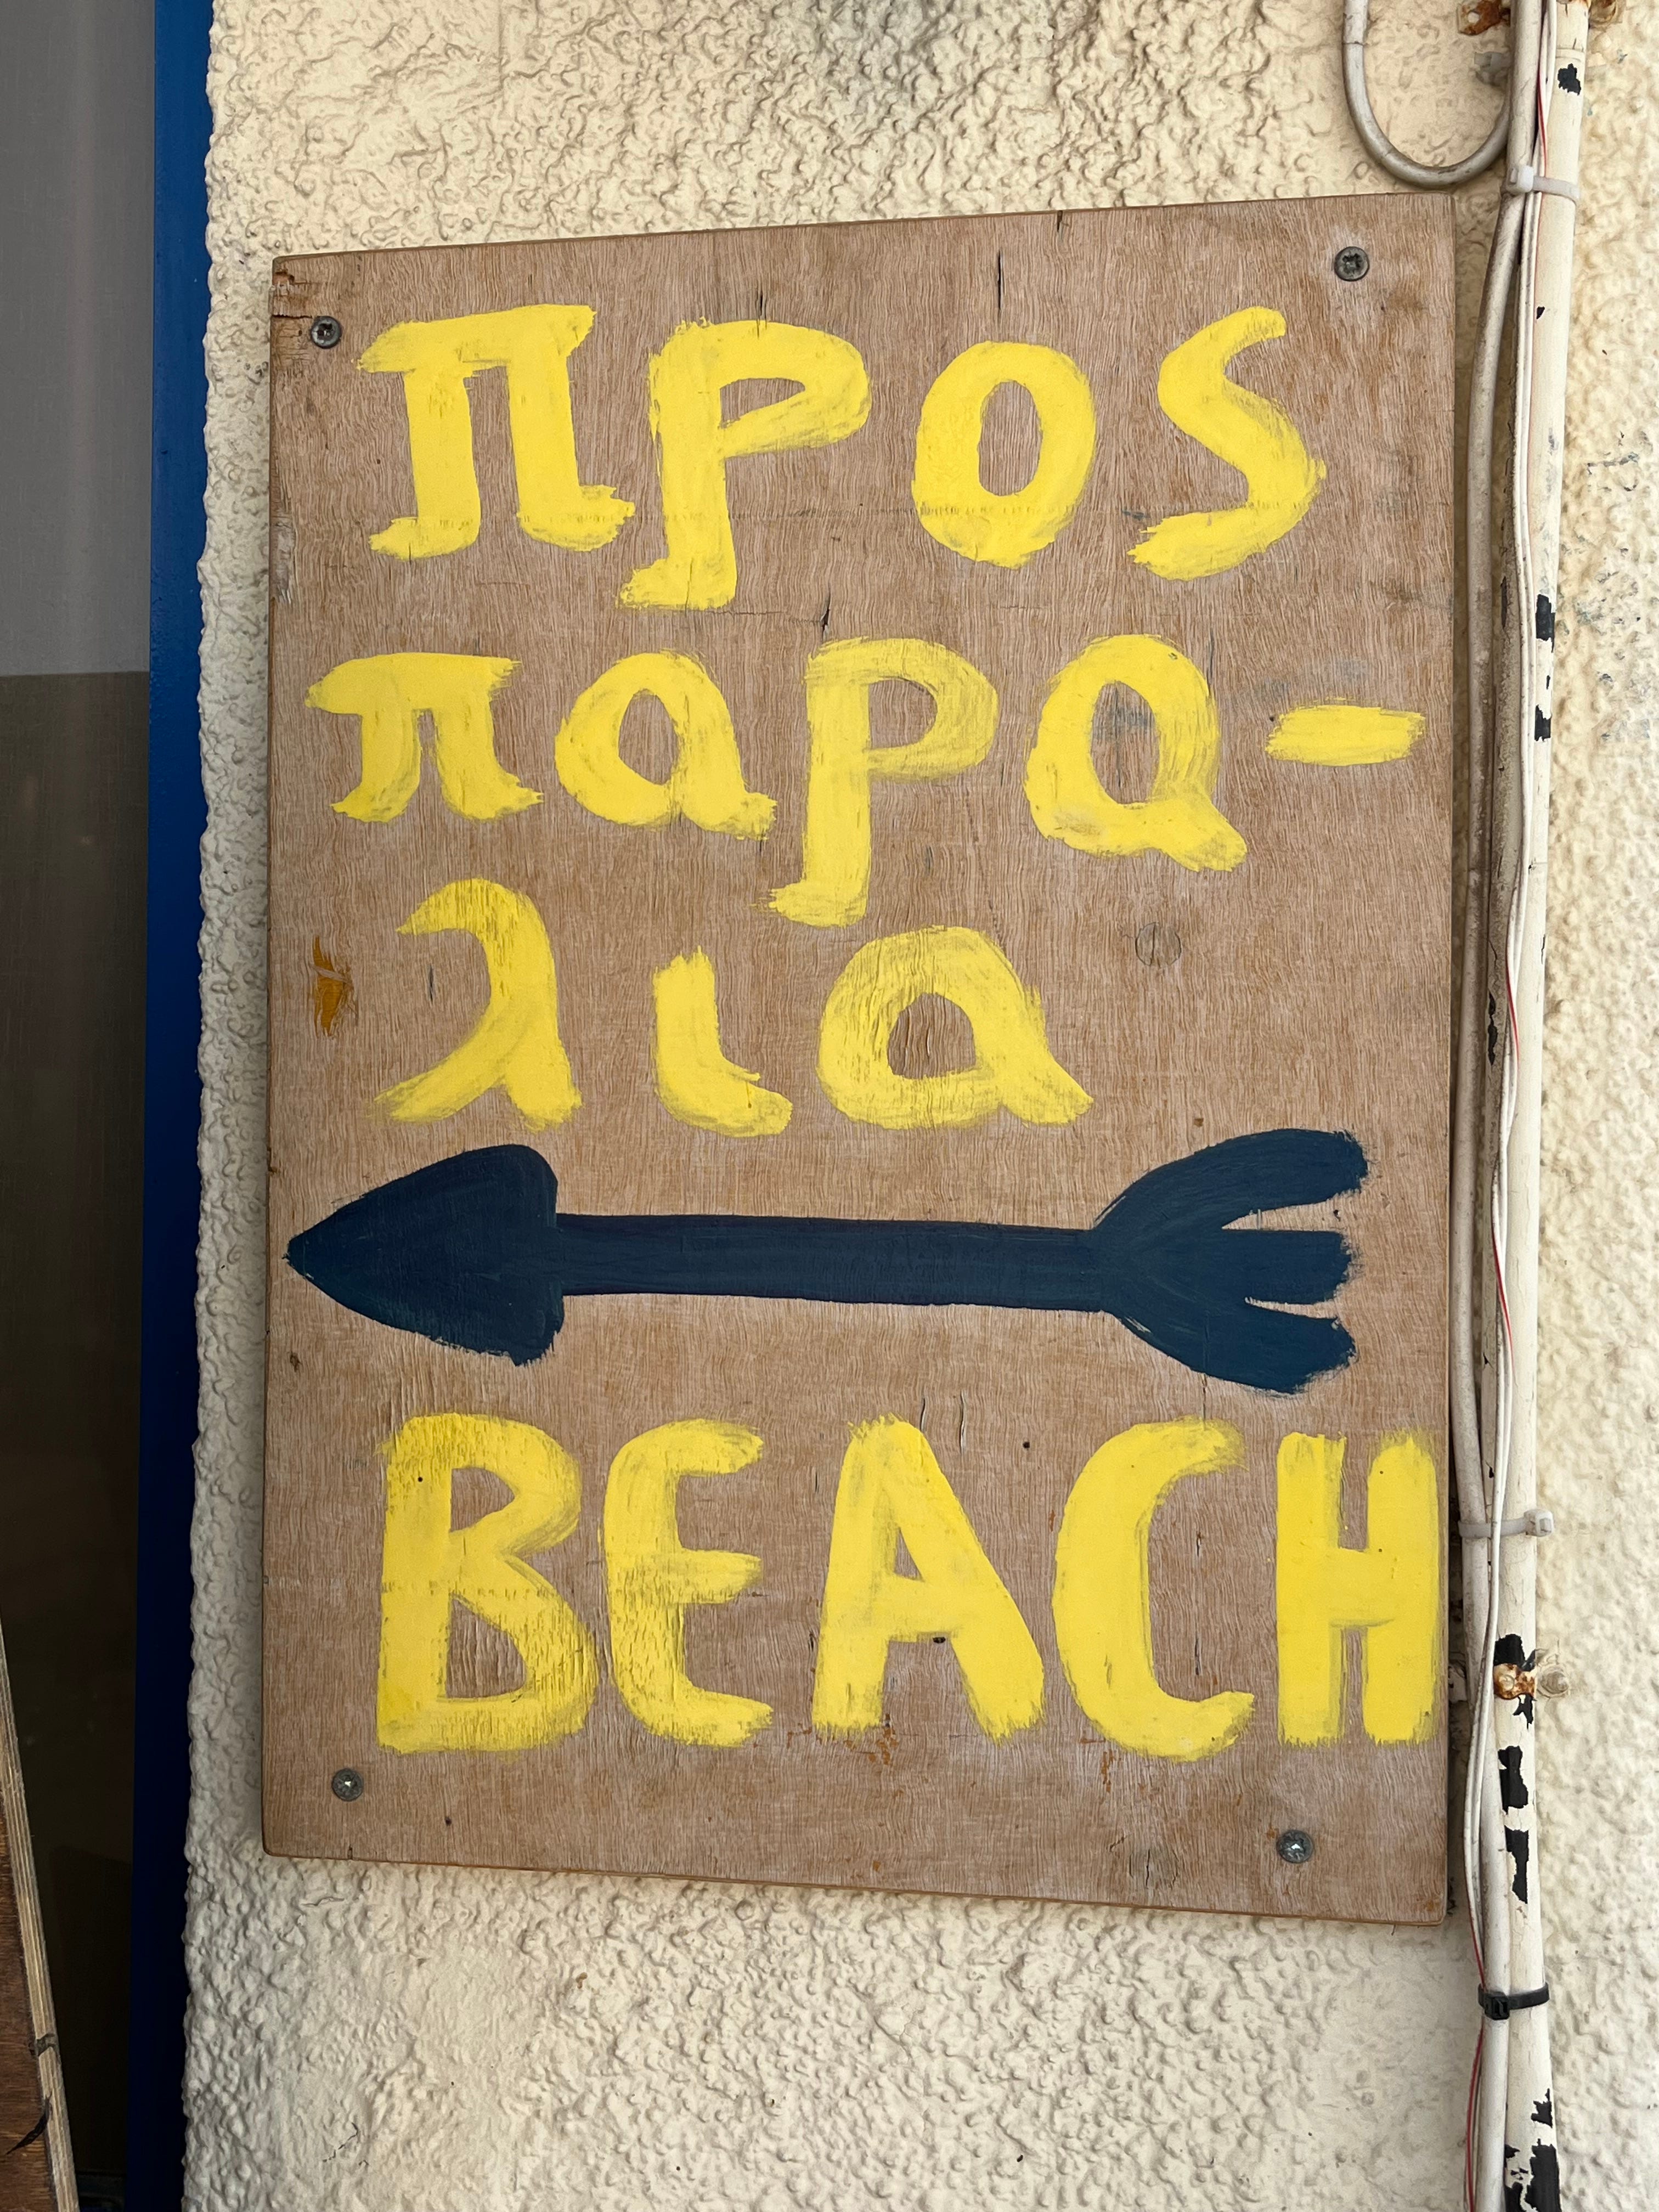 προς
παρα-
λια
BEACH